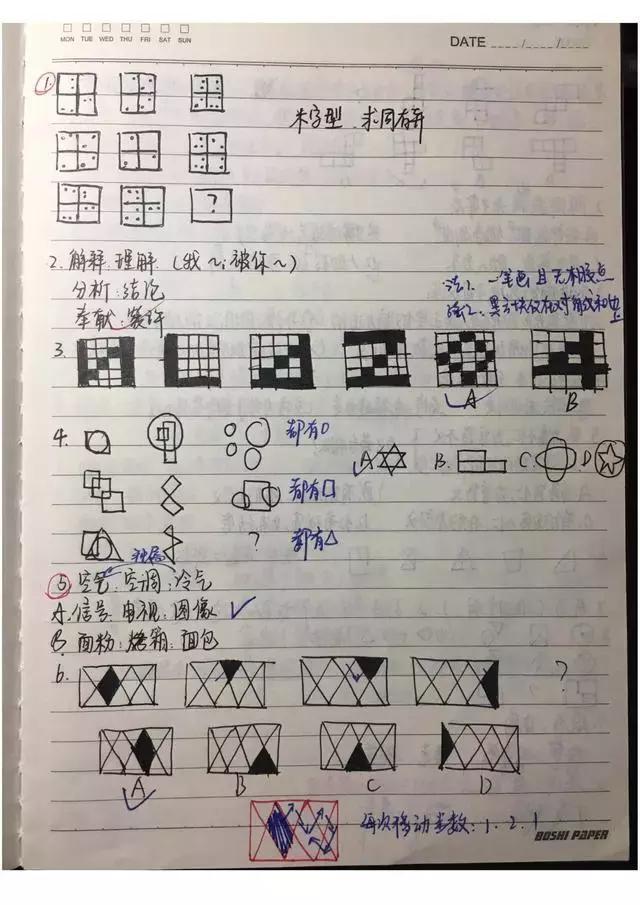 MON TUE WED THU FRI SAT SUN
DATE / /
①
米字型 求同存异
?
2. 解释:理解 (我～; 被你～)
分析:结论
奉献:赞许
法1. 一笔画且无相股点
法2: 黑方块仅有对角线和
3.
A B
4.
都有○
A B. C. D
都有□
? 都有△
⑤ 空气:空调:冷气
A. 信号:电视:图像 ✓
B 面粉:烤箱:面包
6.
?
A B C D
每次移动步数:1.2.1
BOSHI PAPER